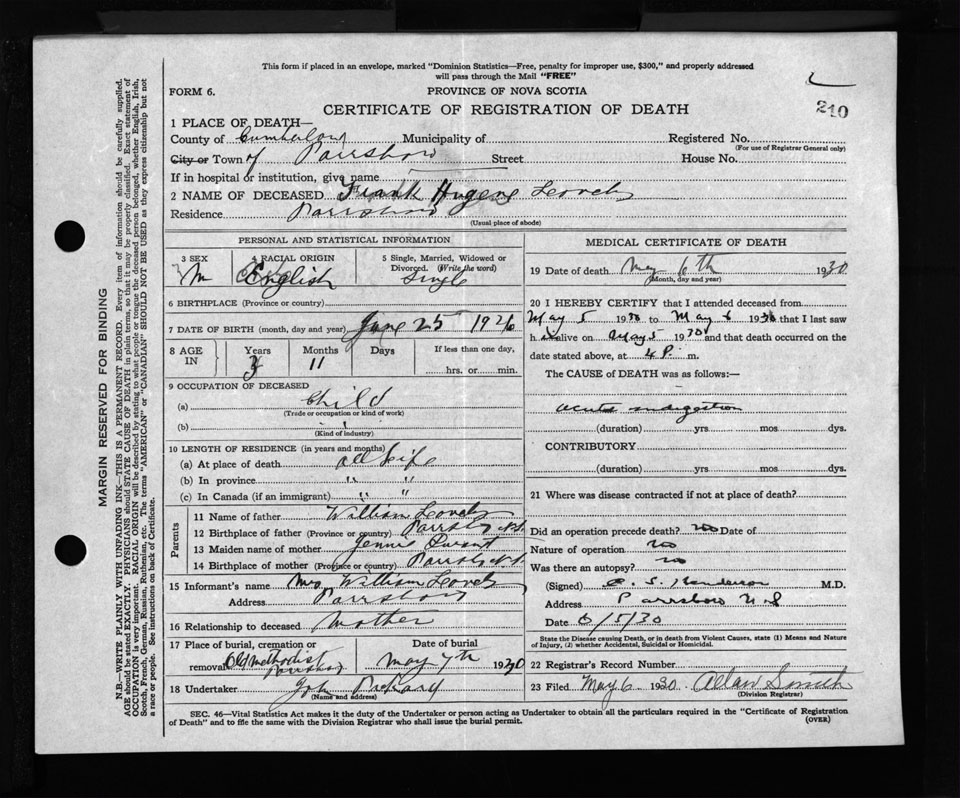 This form if placed in an envelope, marked "Dominion Statistics—Free, penalty for improper use, $300," and properly addressed
will pass through the Mail "FREE"
FORM 6.
PROVINCE OF NOVA SCOTIA
210
CERTIFICATE OF REGISTRATION OF DEATH
1 PLACE OF DEATH—
County of Cumberland Municipality of Registered No.
(For use of Registrar General only)
City or Town of Parrsboro Street House No.
If in hospital or institution, give name
2 NAME OF DECEASED Frank
Residence Parrsboro
(Usual place of abode)
PERSONAL AND STATISTICAL INFORMATION
3 SEX M
4 RACIAL ORIGIN English
5 Single, Married, Widowed or Divorced. (Write the word) Single
6 BIRTHPLACE (Province or country)
7 DATE OF BIRTH (month, day and year) June 25 1926
8 AGE IN Years 3 Months 11 Days If less than one day, hrs. or min.
9 OCCUPATION OF DECEASED
(a) Child
(Trade or occupation or kind of work)
(b)
(Kind of industry)
10 LENGTH OF RESIDENCE (in years and months)
(a) At place of death all life
(b) In province " "
(c) In Canada (if an immigrant) " "
Parents
11 Name of father William
12 Birthplace of father (Province or country) Parrsboro N.S.
13 Maiden name of mother Jennie
14 Birthplace of mother (Province or country) Parrsboro N.S.
15 Informant's name Mrs William
Address Parrsboro
16 Relationship to deceased Mother
17 Place of burial, cremation or removal Old Methodist Parrsboro
Date of burial May 7th 1930
18 Undertaker John
(Name and address)
MEDICAL CERTIFICATE OF DEATH
19 Date of death May 6th 1930
(Month, day and year)
20 I HEREBY CERTIFY that I attended deceased from
May 5 1930 to May 6 1930 that I last saw
h alive on May 5 1930 and that death occurred on the
date stated above, at 4 P. m.
The CAUSE of DEATH was as follows:—
acute indigestion
(duration) yrs. mos dys.
CONTRIBUTORY
(duration) yrs mos. dys.
21 Where was disease contracted if not at place of death?
Did an operation precede death? no Date of
Nature of operation no
Was there an autopsy? no
(Signed) M.D.
Address Parrsboro N.S
Date 6/5/30
State the Disease causing Death, or in death from Violent Causes, state (1) Means and Nature
of Injury, (2) whether Accidental, Suicidal or Homicidal.
22 Registrar's Record Number
23 Filed May 6 1930. Allan Smith
(Division Registrar)
SEC. 46—Vital Statistics Act makes it the duty of the Undertaker or person acting as Undertaker to obtain all the particulars required in the "Certificate of Registration
of Death" and to file the same with the Division Registrar who shall issue the burial permit.
(OVER)
MARGIN RESERVED FOR BINDING
N.B.—WRITE PLAINLY WITH UNFADING INK—THIS IS A PERMANENT RECORD. Every item of information should be carefully supplied.
AGE should be stated EXACTLY. PHYSICIANS should STATE CAUSE OF DEATH in plain terms, so that it may be properly classified. Exact statement of
OCCUPATION is very important. RACIAL ORIGIN will be described by stating to what people or tongue the deceased person belonged, whether English, Irish,
Scotch, French, German, Russian, Ruthenian, etc. The terms "AMERICAN" or "CANADIAN" SHOULD NOT BE USED as they express citizenship but not
a race or people. See instructions on back of Certificate.